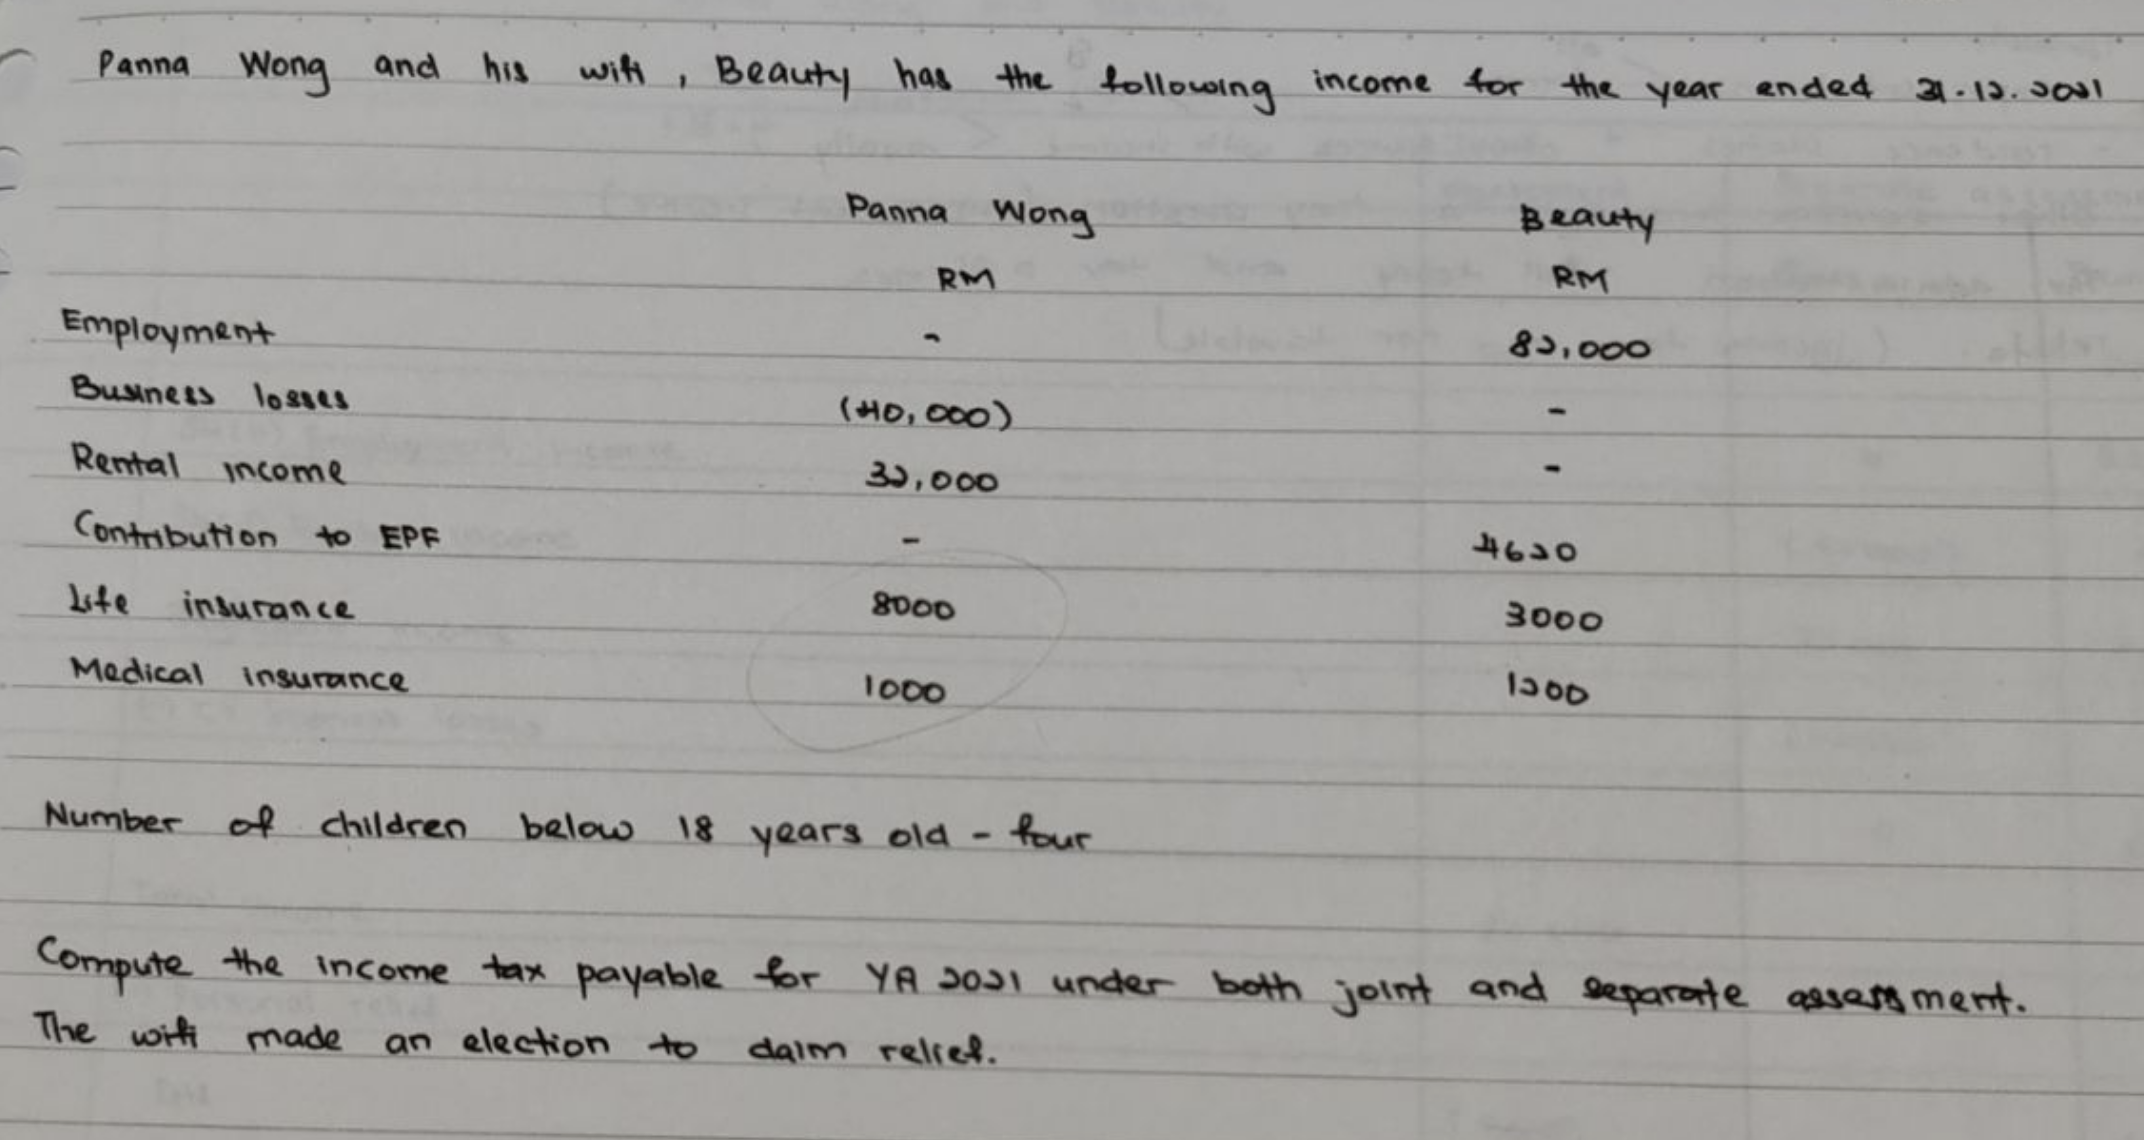 Panna Wong and his wife, Beauty has the following income for the year ended 31.12.2021
Panna Wong Beauty
RM RM
Employment - 82,000
Business losses (40,000) -
Rental income 32,000 -
Contribution to EPF - 4620
Life insurance 8000 3000
Medical insurance 1000 1200
Number of children below 18 years old - four
Compute the income tax payable for YA 2021 under both joint and separate assessment.
The wife made an election to claim relief.